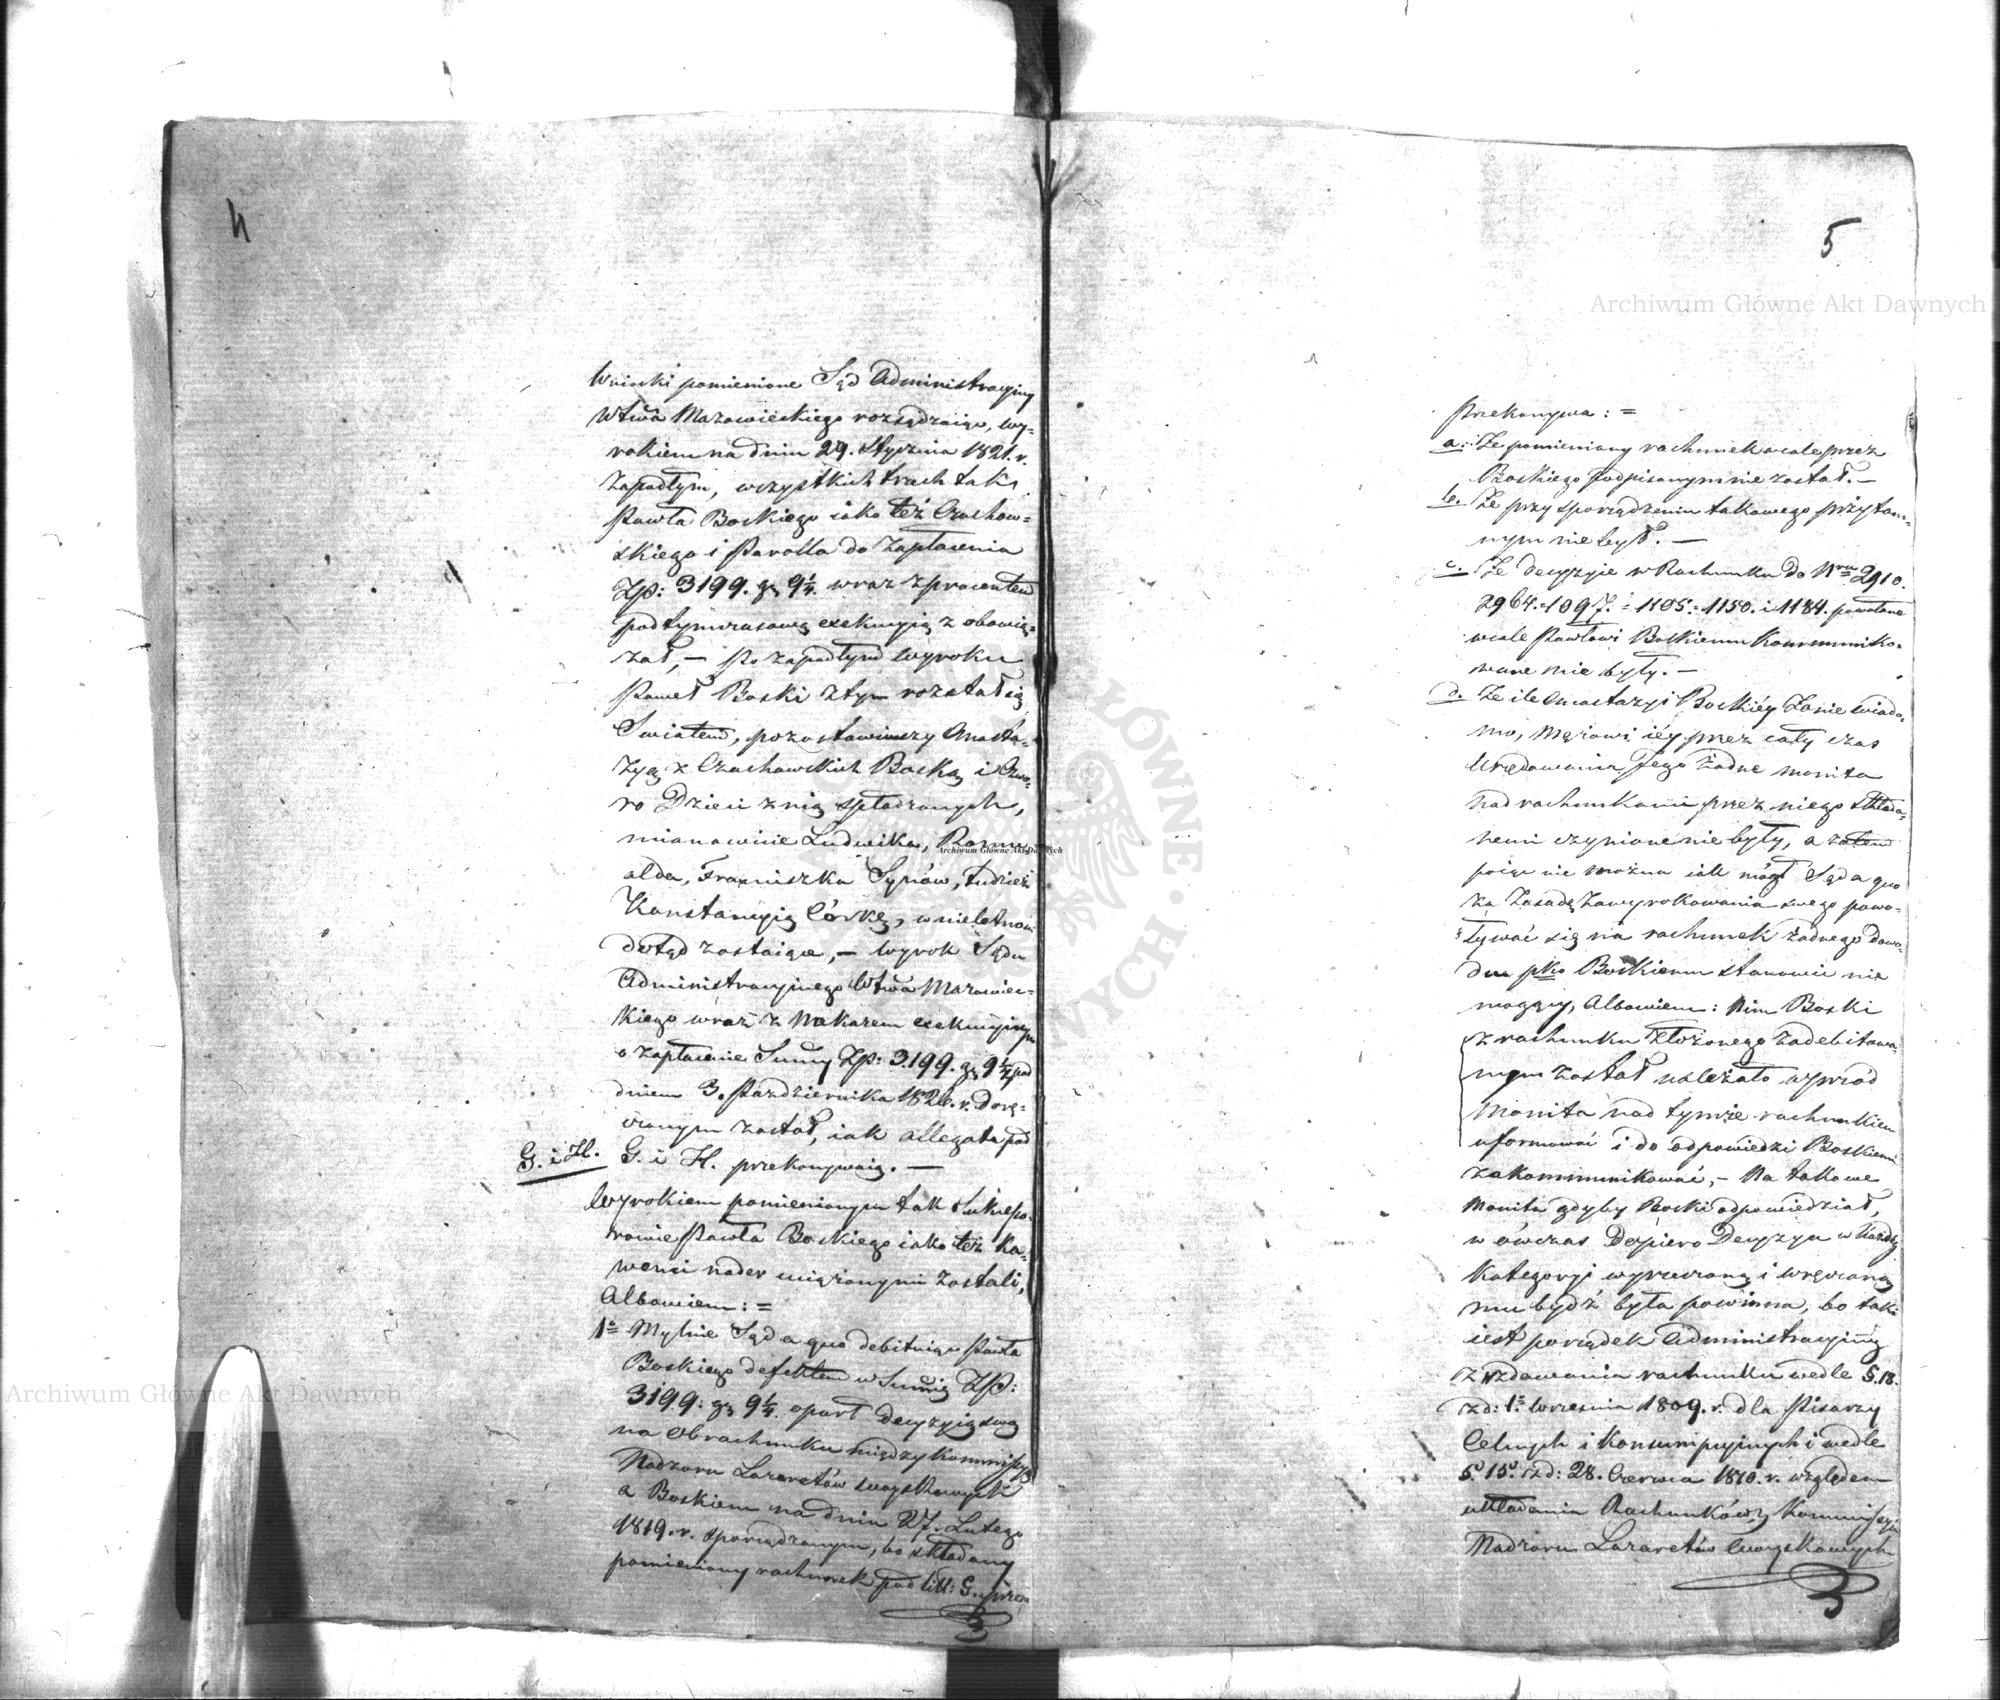 4
Wnioski pomienione Sąd Administracyiny
Wtwa Mazowieckiego rozsądzaiąc, wy=
rokiem na dniu 29. Stycznia 1821. r.
zapadłym, wszystkich trzech tak
Pawła Boskiego iako też Czachow=
skiego i Parolla do zapłacenia
Złp: 3199. gr 9¼. wraz z procentem
pod tymczasową exekucyią z obowią=
zał, – Po zapadłym wyroku
Paweł Boski z tym rozstał się
Swiatem, pozostawiwszy Anasta=
zyą z Czachowskich Boską i Czwo=
ro Dzieci z nią spłodzonych,
mianowicie Ludwika, Romu=
alda, Franciszka Synów, tudzież
Konstancyią Córkę, w nieletnoci
dotąd zostaiące, – Wyrok Sądu
Administracyinego Wtwa Mazowiec=
kiego wraz z Nakazem exekucyinym
o zapłacenie Summy Złp: 3199. gr 9¼ pod
dniem 3. Pazdziernika 1826. r. dorę=
czonym został, iak allegata pod
G. i H. G. i H. przekonywaią. —
Wyrokiem pomienionym tak Sukcesso=
rowie Pawła Boskiego iako też Ka=
wenci nader uciążonymi zostali,
Albowiem: =
1º Mylnie Sąd a quo debituiąc Pawła
Boskiego defektem w Summie Złp:
3199: gr 9¼. oparł decyzyią swą
na Obrachunku między Kommissyą
Nadzoru Lazaretów woyskowych
a Boskiem na dniu 27. Lutego
1819. r. sporządzonym, bo składany
pomieniony rachunek pod litt: G. prze=
5
Przekonywa: =
a. Że pomieniony rachunek wcale przez
Boskiego podpisanym nie został. –
b. Że przy sporządzeniu takowego przytom=
nym nie był. —
c. Że decyzyie w Rachunku do Nru 2910.
2964. = 1097. = 1105. = 1150. i 1184. powołane
wcale Pawłowi Boskiemu kommuniko=
wane nie były. –
d. Że ile Anastazyi Boskiéy Żonie wiado=
mo, Mężowi iéy przez cały czas
Urzędowania Jego żadne monita
nad rachunkami przez niego składa=
nemi czynione nie były, a zatem
poiąć nie można iak mógł Sąd a quo
za Zasadę zawyrokowania swego powo=
ływać się na rachunek żadnego dowo=
du pko Boskiemu stanowić nie
mogący, Albowiem: Nim Boski
z rachunku złożonego zadebitowa=
nym został należało wprzód
Monita nad tymże rachunkiem
uformować i do odpowiedzi Boskiemu
zakommunikować, – Na takowe
Monita gdyby Boski odpowiedział,
w ówczas dopiero Decyzya w każdéy
kategoryi wyrzeczoną i wręczoną
mu bydź była powinna, bo taki
iest porządek Administracyiny
zdawania rachunku wedle §. 18.
zd: 1. Września 1809. r. dla Pisarzy
Celnych i Konsumpcyinych i wedle
§ 15. zd: 28. Czerwca 1810. r. względem
układania Rachunków z Kommissyi
Nadzoru Lazaretów Woyskowych
Archiwum Główne Akt Dawnych
Archiwum Główne Akt Dawnych
Archiwum Główne Akt Dawnych